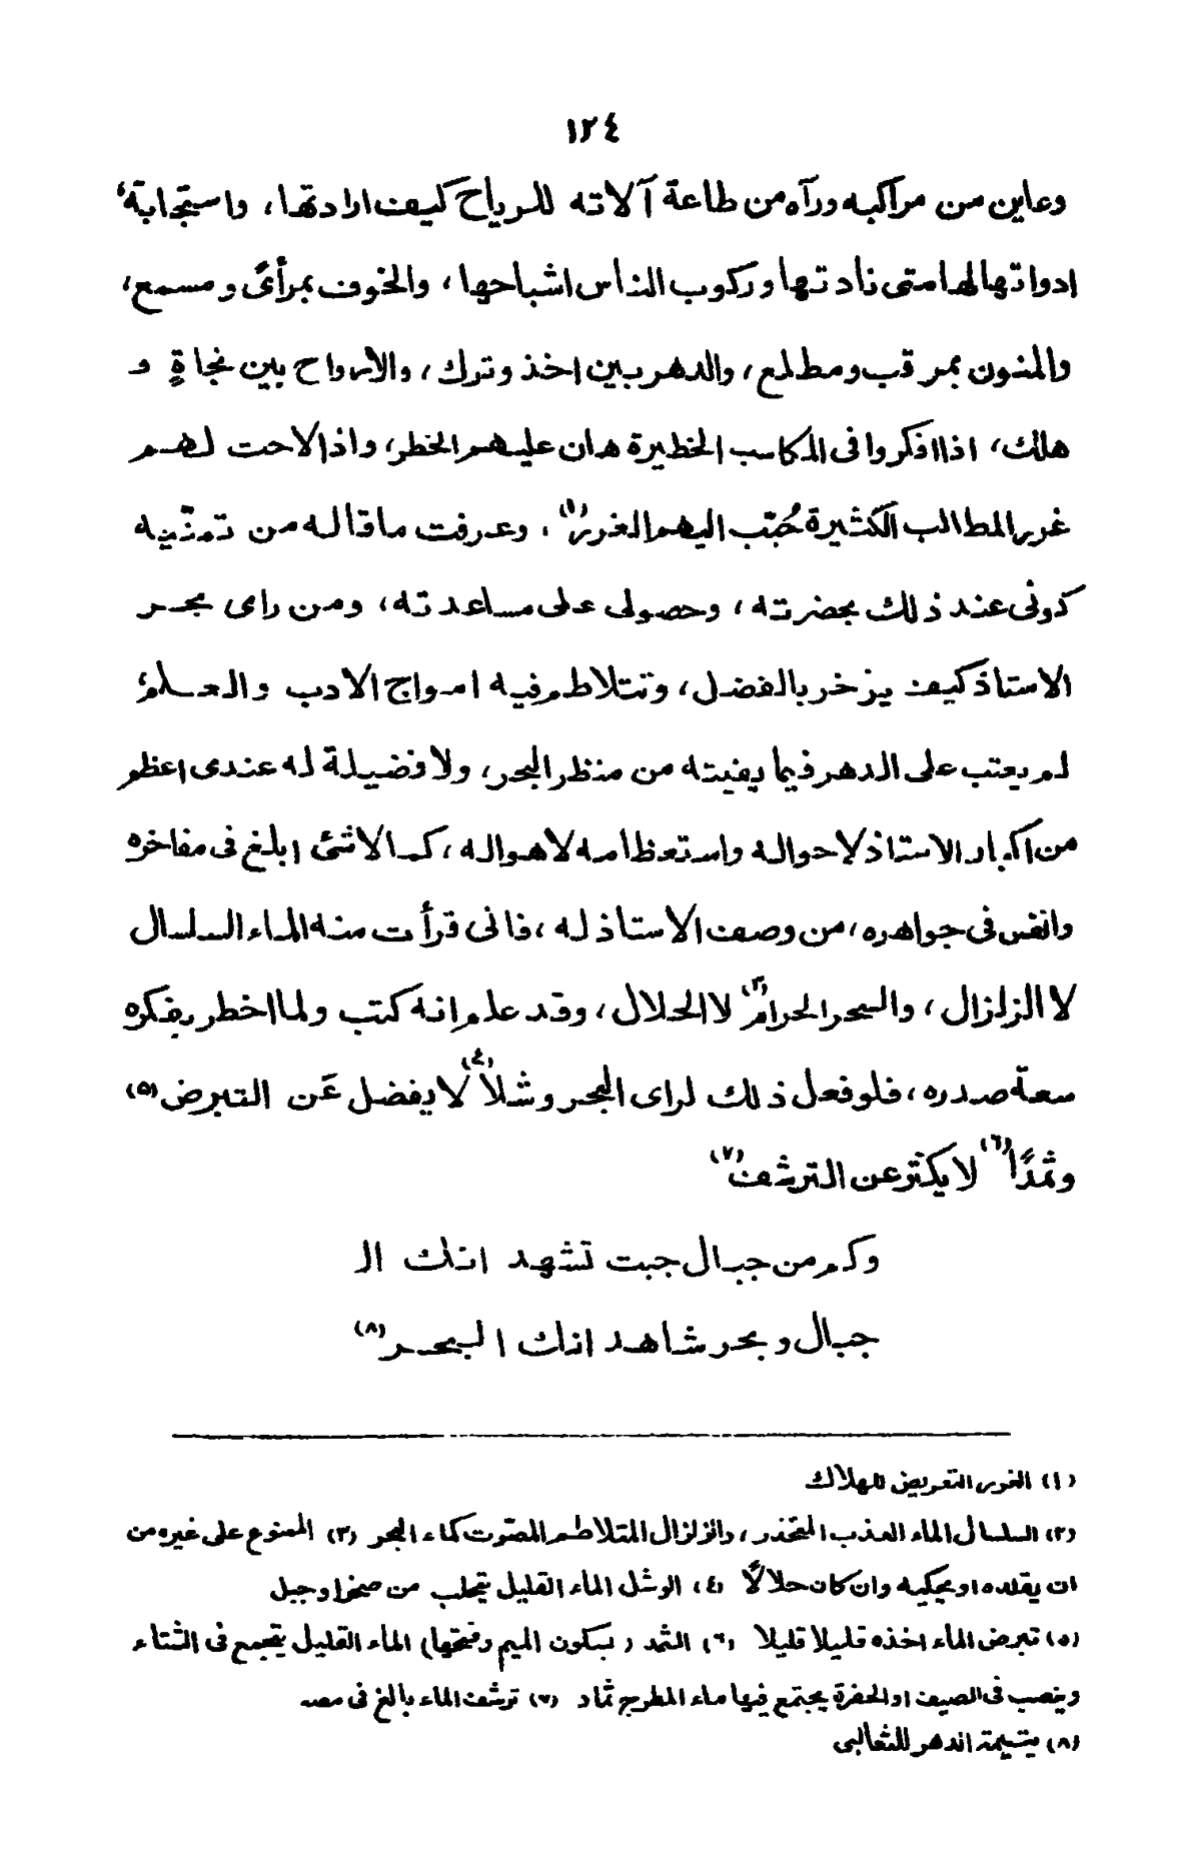 ١٢٤
وعاين من مراكبه ورآه من طاعة آلاته للرياح كيف ارادتها، واستجابة
ادواتها لها متى نادتها وركوب الناس اشباحها، والخوف بمرأىً ومسمع،
والمنون بمرقب ومطلع، والدهر بين اخذ وترك، والارواح بين نجاةٍ و
هلك، اذا افكروا فى المكاسب الخطيرة هان عليهم الخطر، واذا لاحت لهم
غرر المطالب الكثيرة حُبّب اليهم الغرر(١)، وعرفت ما قاله من تمنّيه
كونى عند ذلك بحضرته، وحصولى على مساعدته، ومن راى بحر
الاستاذ كيف يزخر بالفضل، وتتلاطم فيه امواج الادب والعلم،
لم يعتب على الدهر فيما يفيته من منظر البحر، ولا فضيلة له عندى اعظم
من اكبار الاستاذ لاحواله واستعظامه لاهواله، كما لا شئ ابلغ فى مفاخره
وانفس فى جواهره، من وصف الاستاذ له، فانى قرأت منه الماء السلسال
لا الزلزال، والسحر الحرام(٣) لا الحلال، وقد علم انه كتب ولما اخطر بفكره
سعة صدره، فلو فعل ذلك لراى البحر وشلاً(٤) لا يفضل عَن التبرض (٥)
وثمدًا(٦) لا يكثر عن الترشف(٧)
وكم من جبال جبت تشهد انك الـ
جبال وبحر شاهد انك البحر(٨)
(١) الغرر التعريض للهلاك
(٢) السلسال الماء العذب المتخذر، والزلزال المتلاطم المصّوت كماء البحر (٣) الممنوع على غيره من
ان يقلده او يحكيه وان كان حلالاً (٤) الوشل الماء القليل يتحلب من صخر او جبل
(٥) تبرض الماء اخذه قليلا قليلا (٦) الثمد (بسكون الميم وفتحها) الماء القليل يتجمع فى الشتاء
وينصب فى الصيف او الحفرة يجتمع فيها ماء المطر ج ثماد (٧) ترشف الماء بالغ فى مصه
(٨) يتيمة الدهر للثعالبى